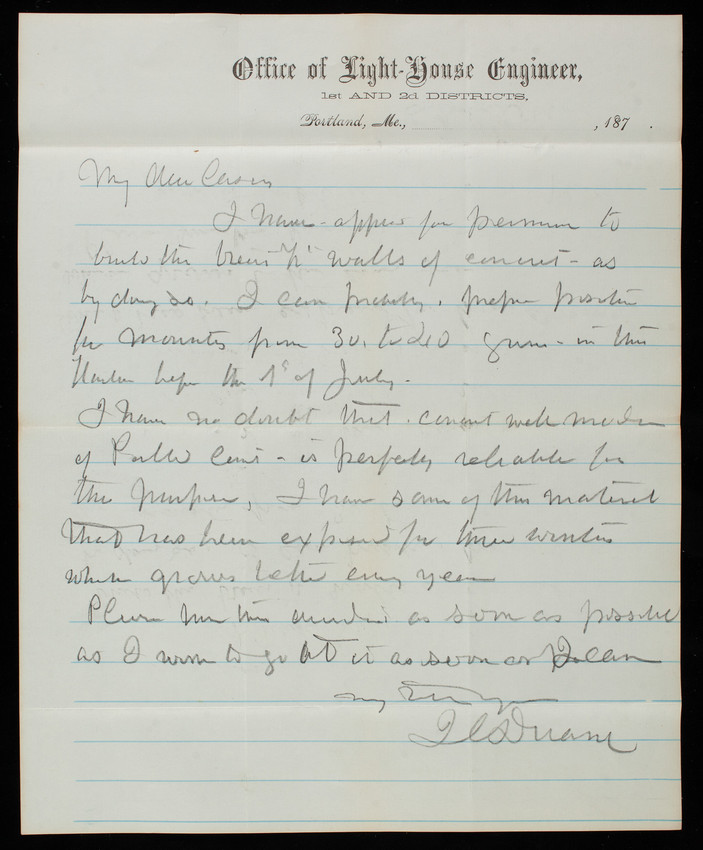 Office of Light-House Engineer,
1st AND 2d DISTRICTS,
Portland, Me., , 187 .
My dear Casey
I have to
build the walls of concrete - as
by doing so. I can probably. prepare
for from 30. to 40 guns - in this
Harbor before the 1st of July.
I have no doubt that. concrete well made
of - is perfectly reliable for
this purpose, I have some of this material
that has been exposed for three winters
which grows better every year
Please as soon as possible
as I wish to go at it as soon as I can
J C Duane